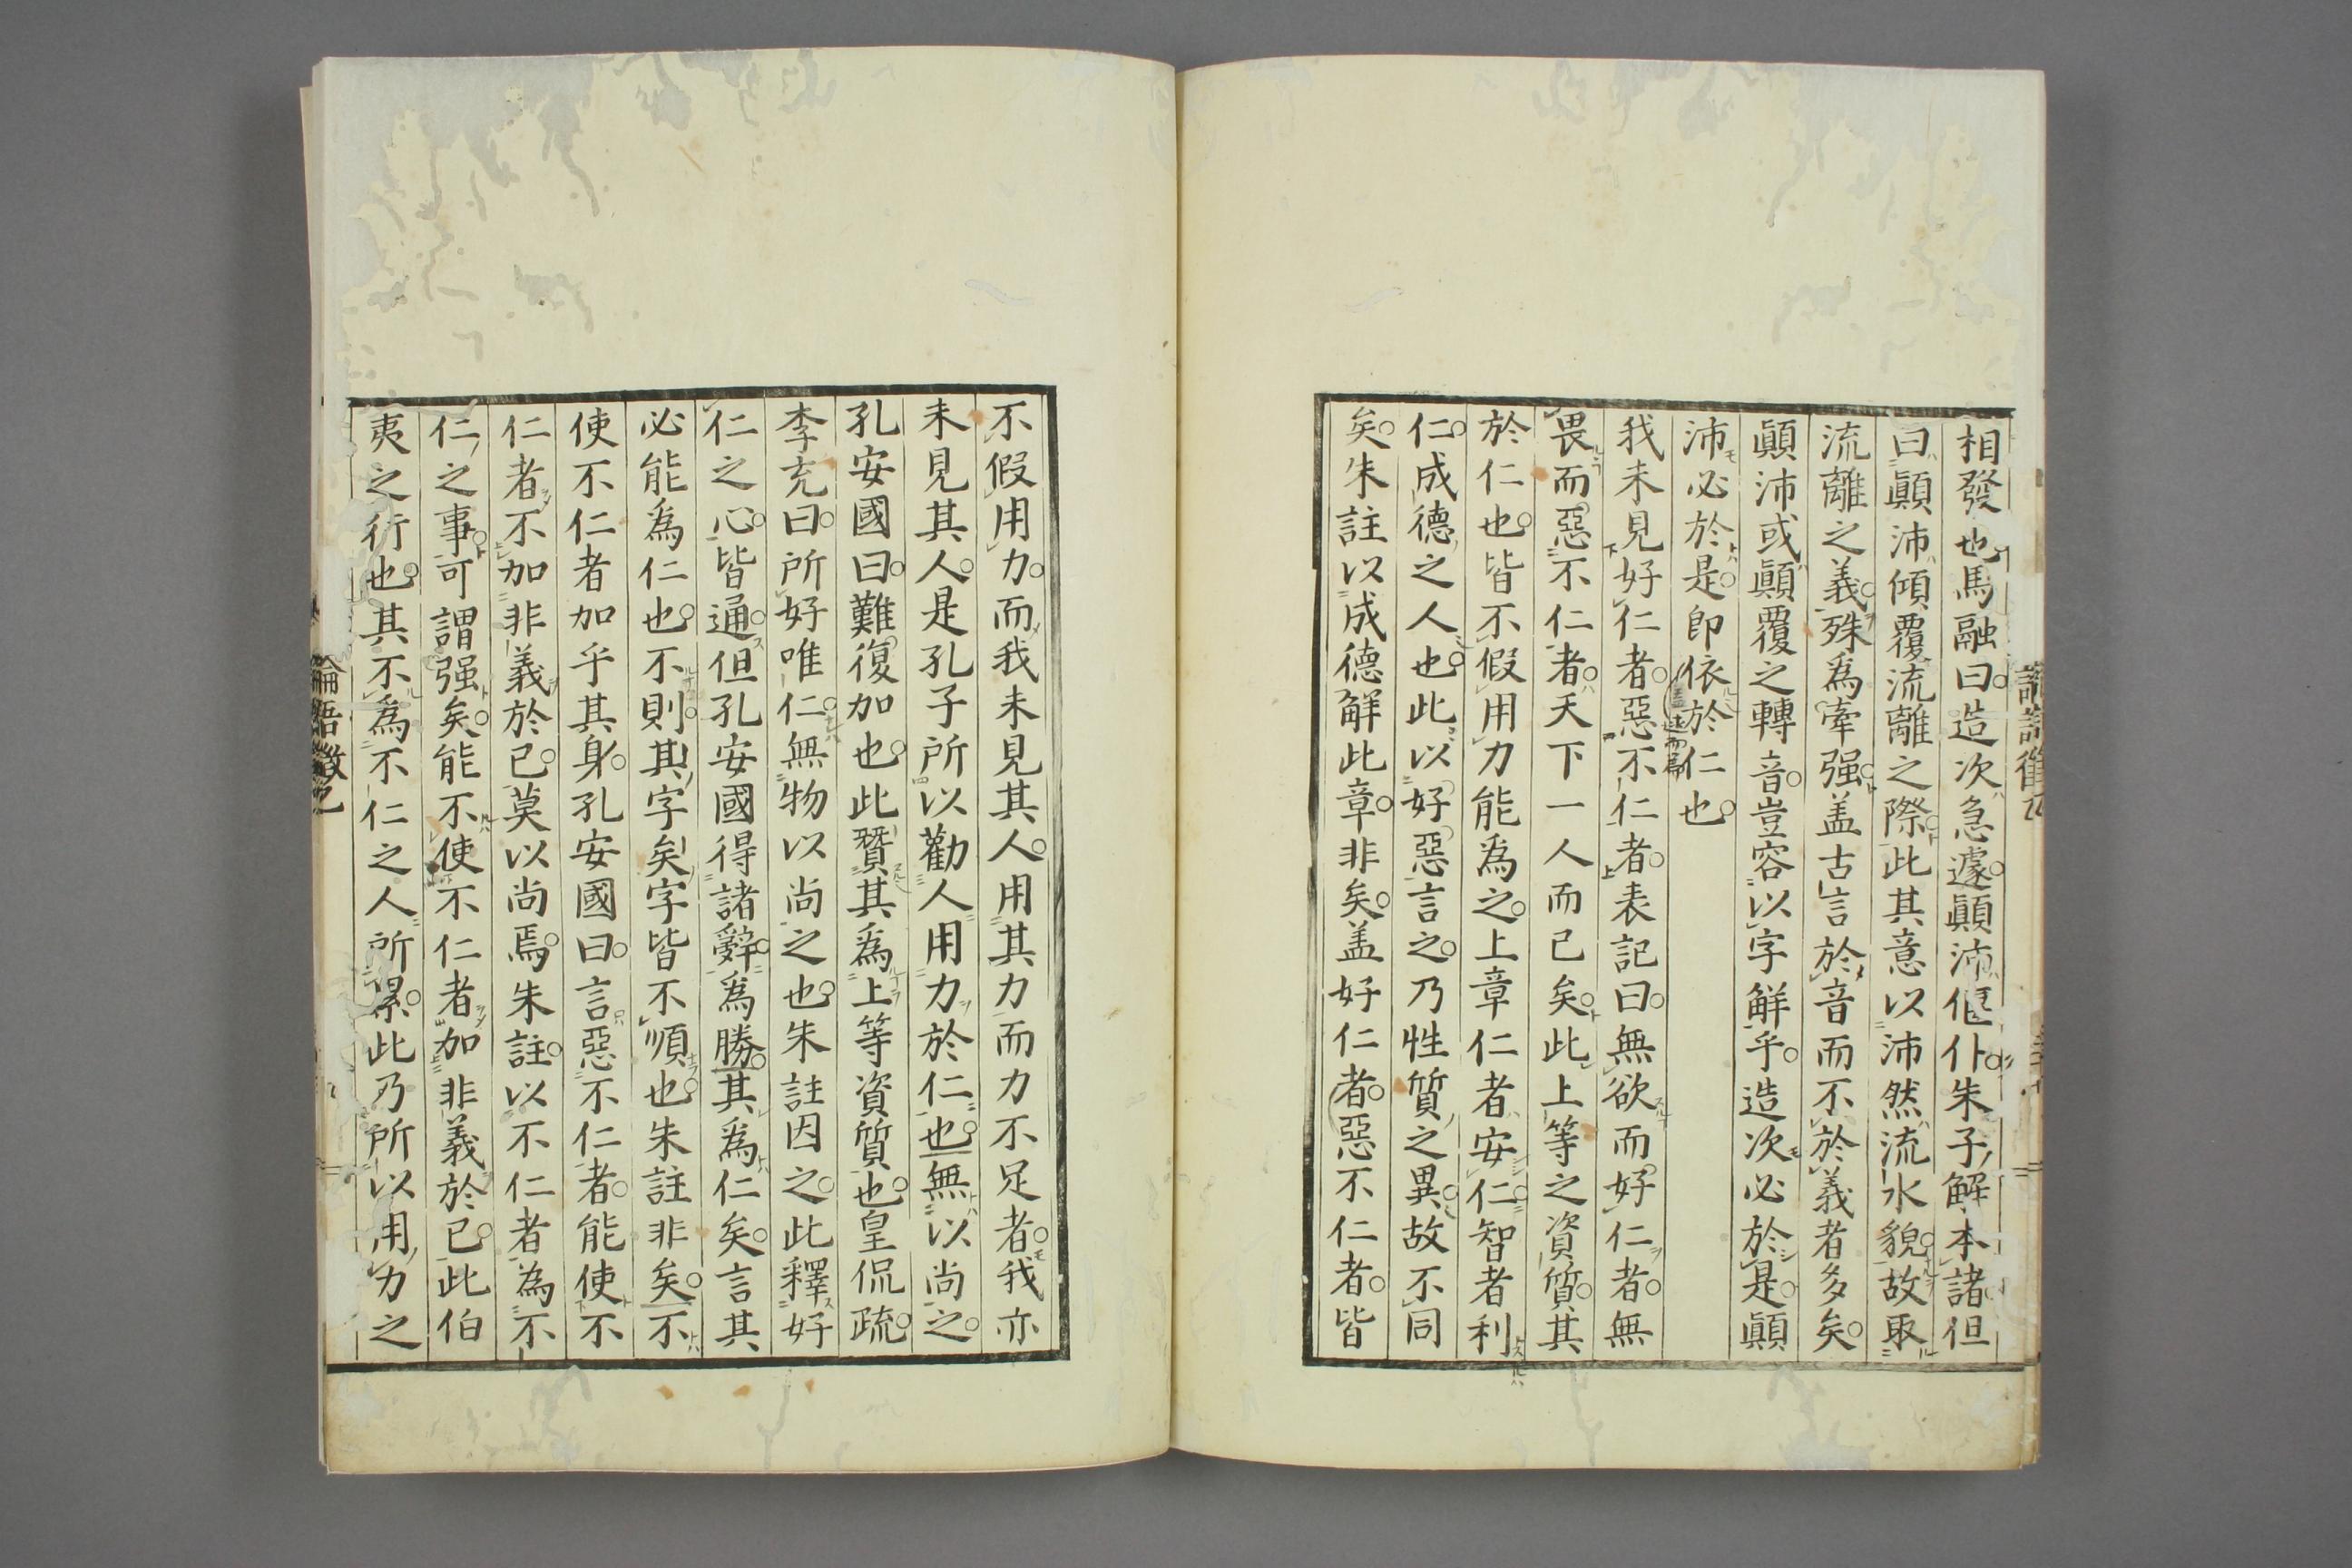 相發也馬融曰造次急遽顚沛偃仆朱子解本諸但
曰顚沛傾覆流離之際此其意以沛然流水貌故取
流離之義殊爲牽强盖古言於音而不於義者多矣
顚沛或顚覆之轉音豈容以字解乎造次必於是顚
沛必於是即依於仁也
我未見好仁者惡不仁者表記曰無欲而好仁者無
畏而惡不仁者天下一人而已矣此上等之資質其
於仁也皆不假用力能爲之上章仁者安仁智者利
仁成德之人也此以好惡言之乃性質之異故不同
矣朱註以成德解此章非矣盖好仁者惡不仁者皆
不假用力而我未見其人用其力而力不足者我亦
未見其人是孔子所以勸人用力於仁也無以尚之
孔安國曰難復加也此贊其爲上等資質也皇侃疏
李充曰所好唯仁無物以尚之也朱註因之此釋好
仁之心皆通但孔安國得諸辭爲勝其爲仁矣言其
必能爲仁也不則其字矣字皆不順也朱註非矣不
使不仁者加乎其身孔安國曰言惡不仁者能使不
仁者不加非義於己莫以尚焉朱註以不仁者為不
仁之事可謂强矣能不使不仁者加非義於己此伯
夷之行也其不爲不仁之人所累此乃所以用力之
論語徴乙